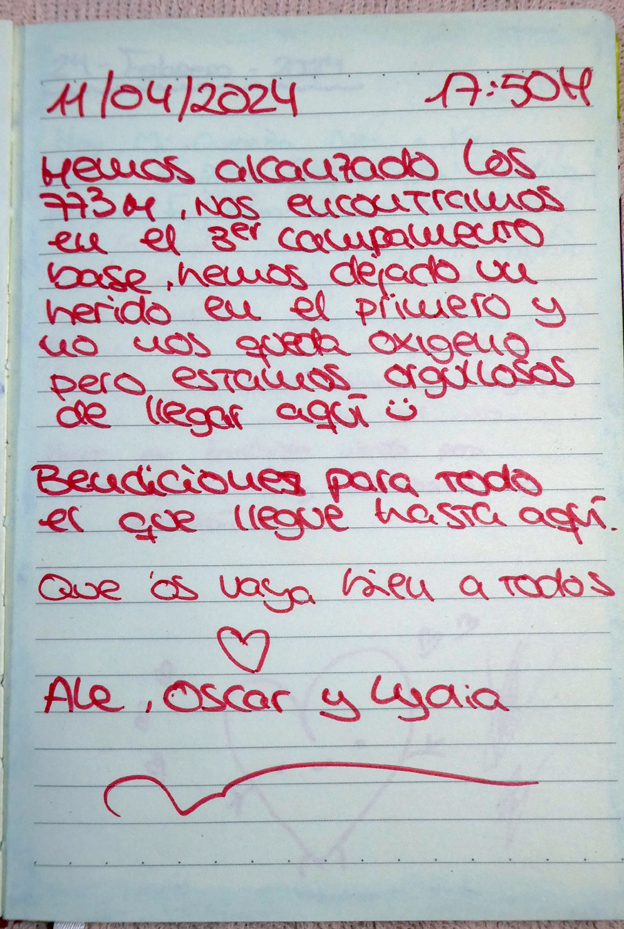 11/04/2024 17:50H
Hemos alcanzado los
773M, nos encontramos
en el 3er campamento
base, hemos dejado un
herido en el primero y
no nos queda oxigeno
pero estamos orgullosos
de llegar aquí ü
Bendiciones para todo
el que llegue hasta aquí.
Que os vaya bien a todos
♡
Ale, Oscar y Lydia